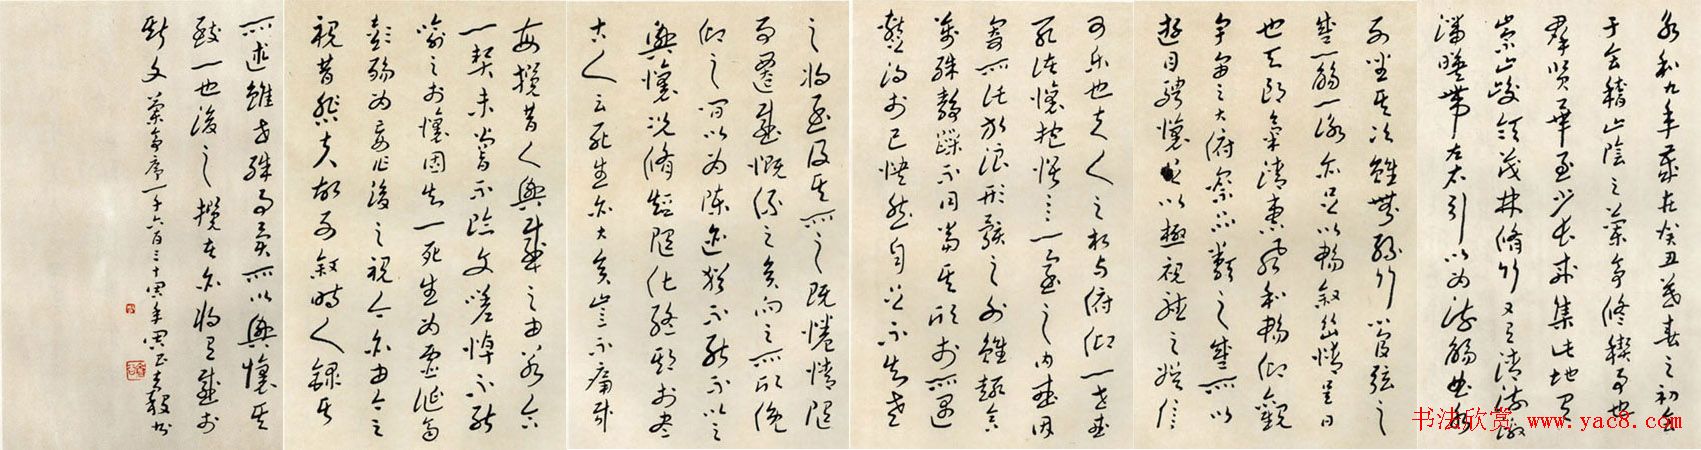 永和九年歲在癸丑暮春之初會
于會稽山陰之蘭亭修稧事也
群賢畢至少長咸集此地有
崇山峻領茂林脩竹又有清流激
湍暎帶左右引以為流觴曲水
列坐其次雖無絲竹管弦之
盛一觴一詠亦足以暢敘幽情是日
也天朗氣清惠風和暢仰觀
宇宙之大俯察品類之盛所以
遊目騁懷足以極視聽之娛信
可樂也夫人之相與俯仰一世或
取諸懷抱悟言一室之內或因
寄所託放浪形骸之外雖趣舍
萬殊靜躁不同當其欣於所遇
暫得於己快然自足不知老
之將至及其所之既惓情隨
事遷感慨係之矣向之所欣俛
仰之間以為陳迹猶不能不以之
興懷況脩短隨化終期於盡
古人云死生亦大矣豈不痛哉
每攬昔人興感之由若合
一契未嘗不臨文嗟悼不能
喻之於懷固知一死生為虛誕齊
彭殤為妄作後之視今亦由今之
視昔悲夫故列敘時人錄其
所述雖世殊事異所以興懷其
致一也後之攬者亦將有感於
斯文 蘭亭序一千六百三十周年周昌穀書
书法欣赏 www.yac8.com